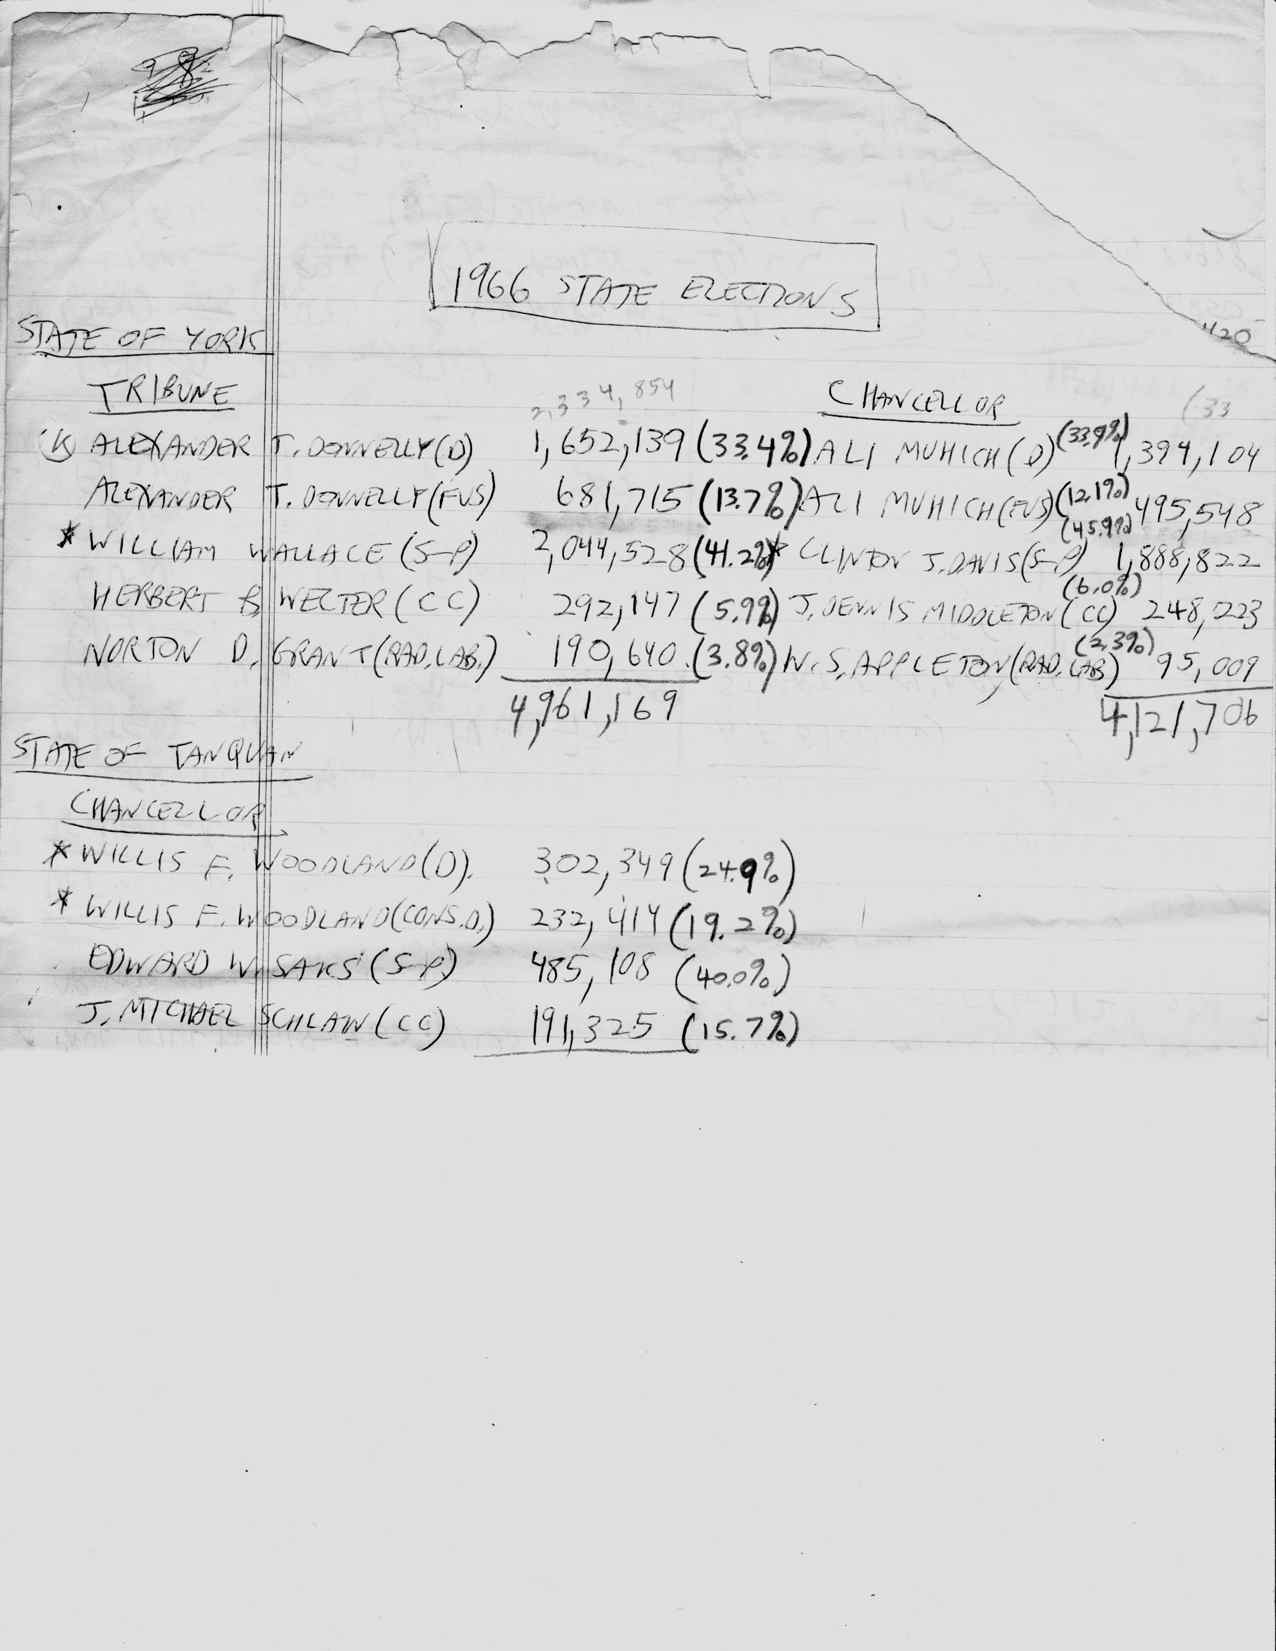 1966 STATE ELECTIONS
420
STATE OF YORK
TRIBUNE 2,334,854 CHANCELLOR (33
(K) ALEXANDER T. DONNELLY (D) 1,652,139 (33.4%) ALI MUHICH (D) (33.9%) 1,394,104
ALEXANDER T. DONNELLY (FUS) 681,715 (13.7%) ALI MUHICH (FUS) (12.1%) 495,548
* WILLIAM WALLACE (S-P) 2,044,528 (41.2%) * CLINTON J. DAVIS (S-P) (45.9%) 1,888,822
HERBERT B WELTER (CC) 292,147 (5.9%) J. DENNIS MIDDLETON (CC) (6.0%) 248,223
NORTON D. GRANT (RAD. LAB.) 190,640 (3.8%) W. S. APPLETON (RAD. LAB) (2.3%) 95,009
4,961,169 4,121,706
STATE OF TANQUAN
CHANCELLOR
* WILLIS F. WOODLAND (D). 302,349 (24.9%)
* WILLIS F. WOODLAND (CONS. D.) 232,414 (19.2%)
EDWARD W. SAKS (S-P) 485,108 (40.0%)
J. MICHAEL SCHLAW (CC) 191,325 (15.7%)